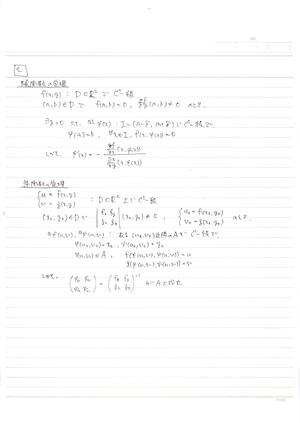 2
陰関数の定理
f(x,y) : D⊂ℝ² で C¹-級
(a,b)∈D で f(a,b)=0, ∂f/∂y(a,b)≠0 のとき.
∃δ>0 s.t. ∃1 φ(x) : I=(a-δ, a+δ) で C¹-級で
φ(a)=b, ∀x∈I, f(x,φ(x))=0
しかも φ'(x) = - ∂f/∂x(x,φ(x)) / ∂f/∂y(x,φ(x))
逆関数の定理
{ u = f(x,y)
v = g(x,y) : D⊂ℝ² 上で C¹-級
(x₀,y₀)∈D で | fx fy gx gy |(x₀,y₀)≠0, { u₀=f(x₀,y₀) v₀=g(x₀,y₀) のとき.
φ(u,v), ψ(u,v) : ある (u₀,v₀) 近傍の A で C¹-級で,
φ(u₀,v₀)=x₀, ψ(u₀,v₀)=y₀
∀(u,v)∈A, f(φ(u,v),ψ(u,v))=u
g(φ(u,v),ψ(u,v))=v
しかも, ( φu φv ψu ψv ) = ( fx fy gx gy )⁻¹ が A上成立